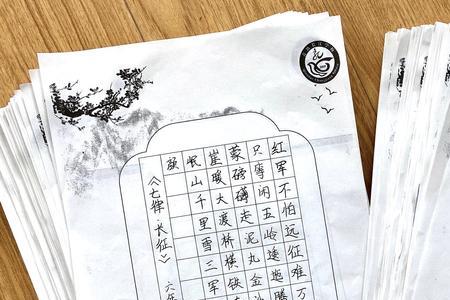 红军不怕远征难万
只等闲五岭逶迤腾
蒙磅礴走泥丸金沙
崖暖大渡桥横铁
岷山千里雪三军
颜
《七律·长征》 六年